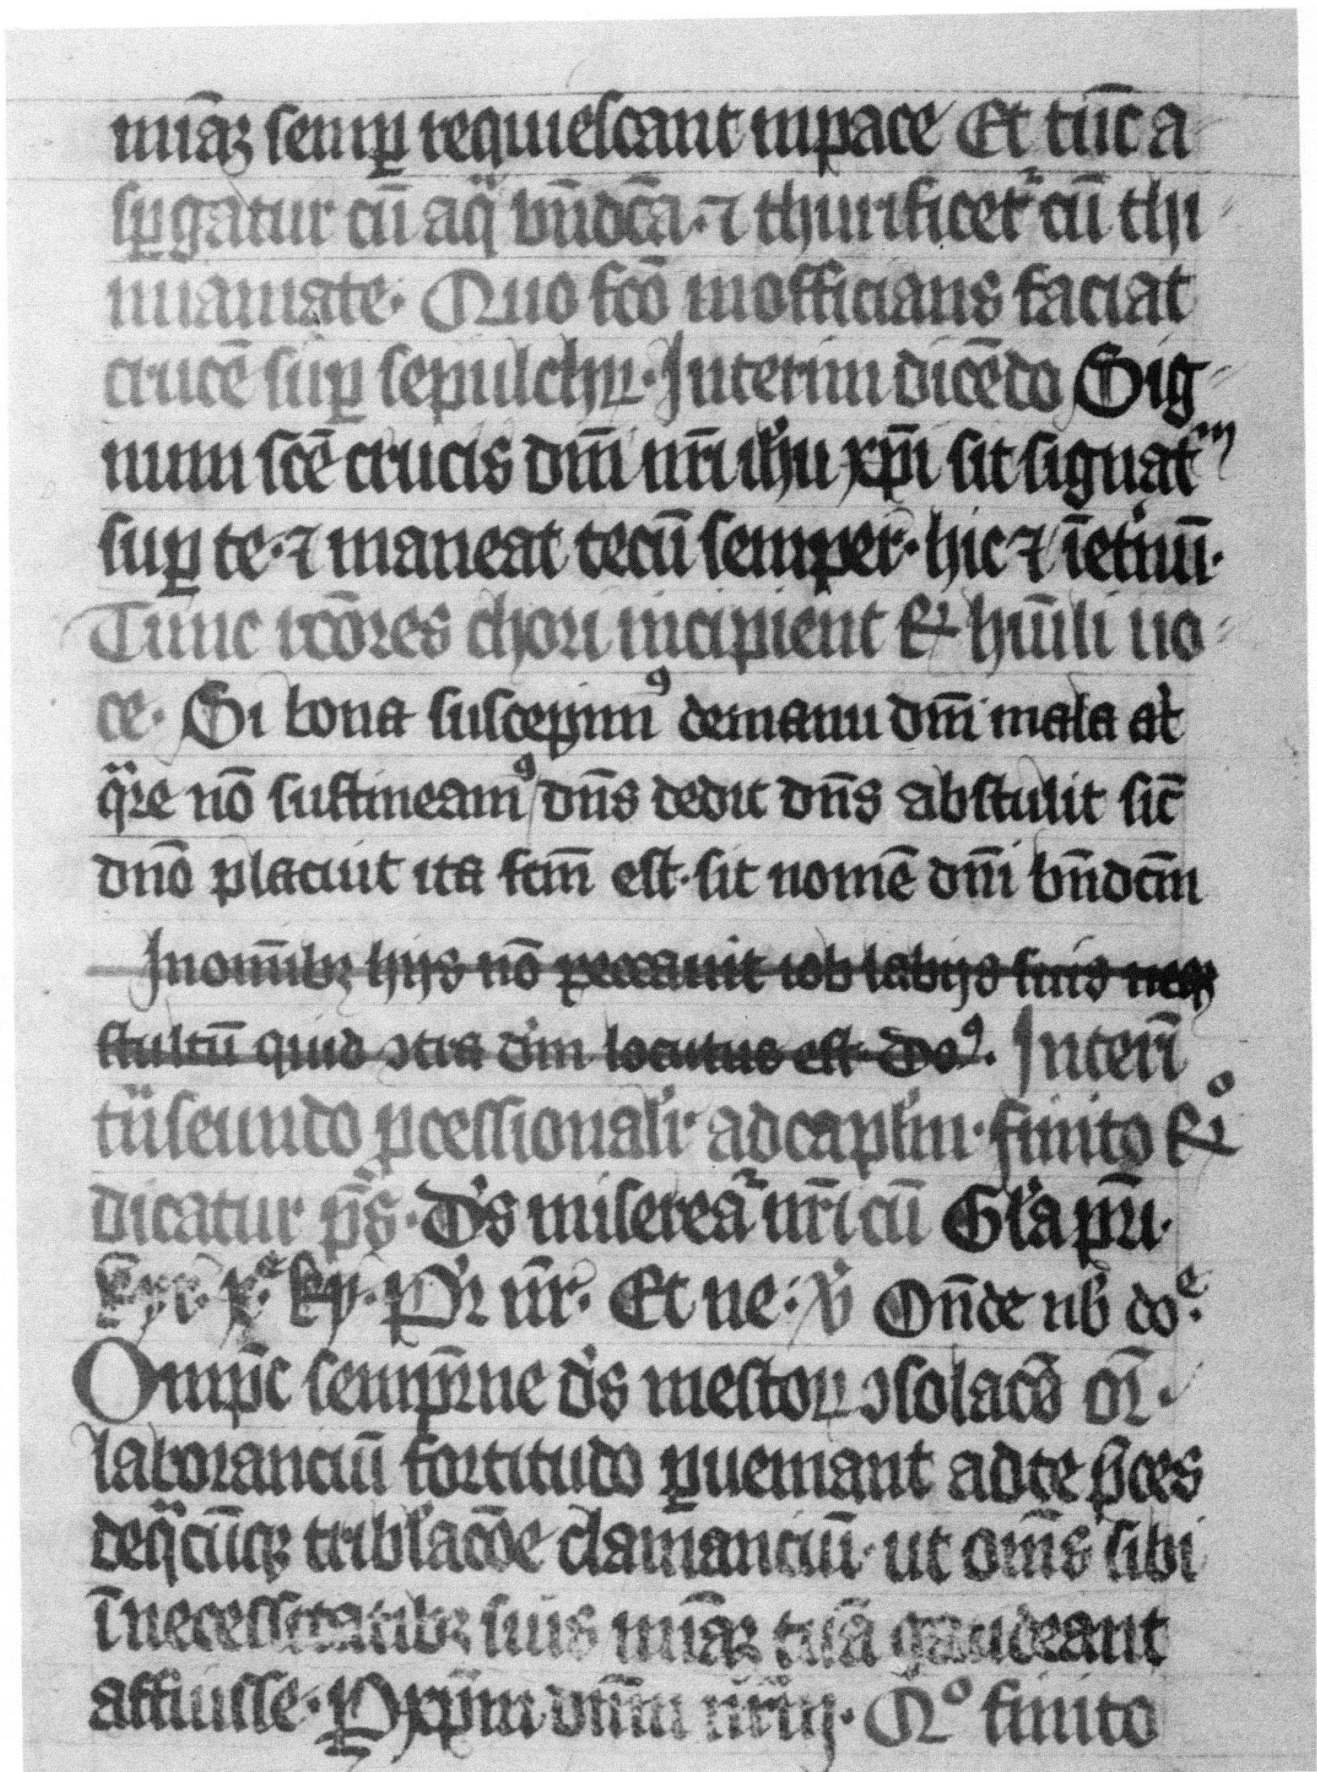 miāꝫ semꝑ requiescant inpace Et tūc a
sꝑgatur cū aqͣ bn̄dc̄a · ⁊ thurificetᷣ cū thi
miamate · Quo fc̄o inofficians faciat
crucē suꝑ sepulchꝝ · Interim dicēdo Sig
num sc̄e crucis dn̄i nr̄i ih̄u xp̄i sit signatᷣm
suꝑ te · ⁊ maneat tecū semper · hic ⁊ īet̉nū ·
Tunc rc̄ores chori incipient ℟ hūili uo
ce · Si bona suscepimꝰ demanu dn̄i mala at̄
qͣre nō sustineamꝰ dn̄s dedit dn̄s abstulit sic̄
dn̄o placuit ita fcm̄ est · sit nomē dn̄i bn̄dcm̄
Inom̄ibꝫ hijs nō peccauit iob labijs suis neqꝫ
stultū quid ꝯtra dm̄ locutus est · Doꝰ · Interī
tn̄seundo ꝓcessionalr̄ · adcapl̄m · finito ℟º
dicatur p̄s · Ds̄ misereaᷣ nr̄i cū Gl̄a pr̄i ·
kyr · xͤ · ky · Pr̄ nr̄ · Et ne : ℣ On̄de nb̄ doͤ ·
Omp̄c semp̄rne ds̄ mestoꝝ ꝯsolacō or̄ ·
laboranciū fortitudo ꝑueniant adte p̄ces
deqͣcūqꝫ tribl̄acōe clamanciū · ut om̄s sibi
īnecessitatibꝫ suis miāꝫ tuā gaudeant
affuisse · P xp̄m dn̄m nr̄m · Qº finito